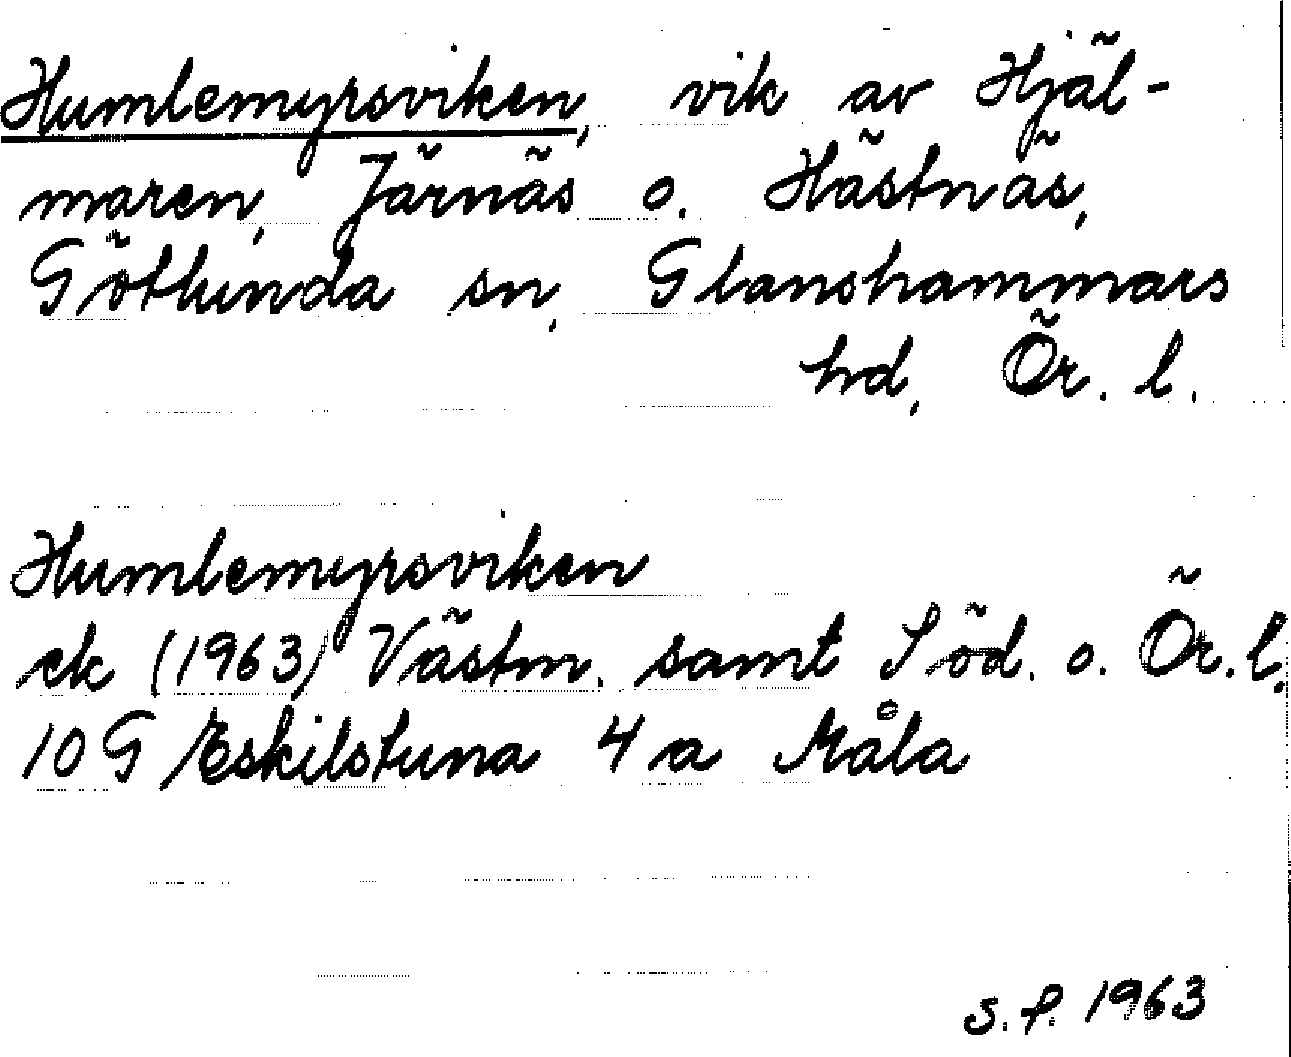 Humlemyrsviken, vik av Hjäl-
maren, Järnäs o. Hästnäs,
Götlunda sn, Glanshammars
hd, Ör. l.
Humlemyrsviken
ek (1963) Västm. samt Söd. o. Ör. l.
10 G Eskilstuna 4 a Måla
S. P. 1963